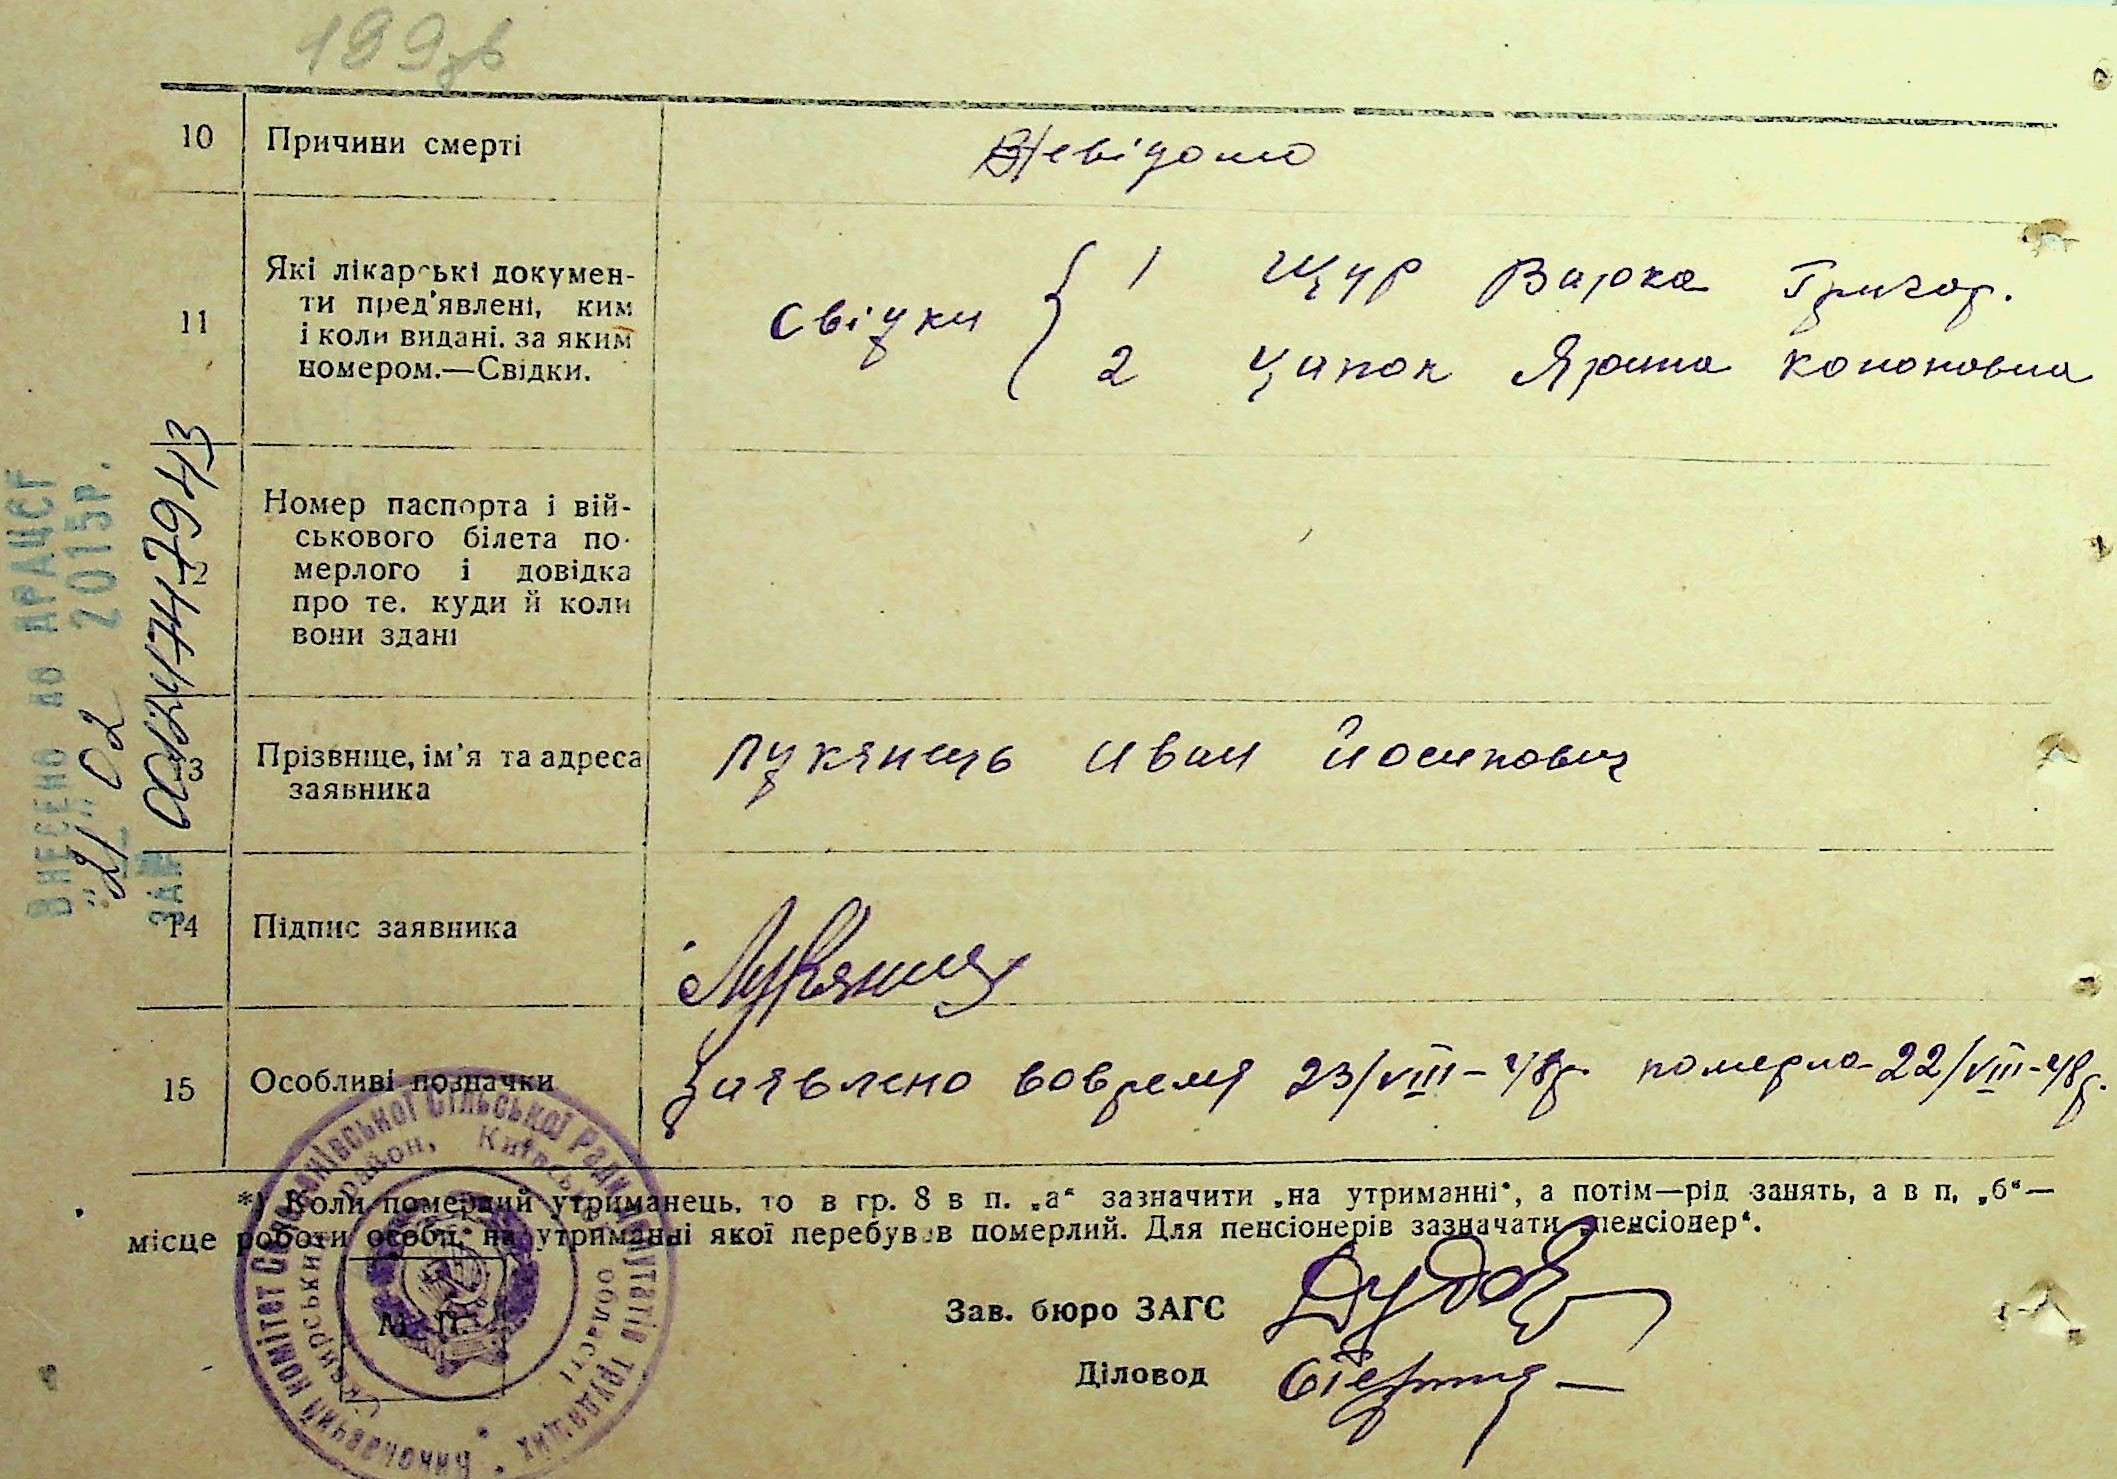 199зв
10 Причини смерті Невідомо
11 Які лікарські докумен-
ти пред'явлені, ким
і коли видані. за яким
номером.—Свідки.
Свідки { 1 Щур Варка Григор.
2 Цапок Ярина Кононовна
12 Номер паспорта і вій-
ськового білета по-
мерлого і довідка
про те. куди й коли
вони здані
13 Прізвище, ім'я та адреса
заявника
Лукянець Иван Йосипович
14 Підпис заявника Лукянець
15 Особливі позначки Заявлено вовремя 23/VIII-48р. померла 22/VIII-48р.
*) Коли померлий утриманець, то в гр. 8 в п. „а“ зазначити „на утриманні“, а потім—рід занять, а в п. „б“—
місце роботи особи, на утриманні якої перебував померлий. Для пенсіонерів зазначати „пенсіонер“.
М. П.
Зав. бюро ЗАГС
Діловод
Виконавчий комітет Сільської Ради депутатів трудящих
Сквирський район, Київської області
ВНЕСЕНО ДО ДРАЦСГ
„21“ 02 2015р.
ЗА№ 00124747943